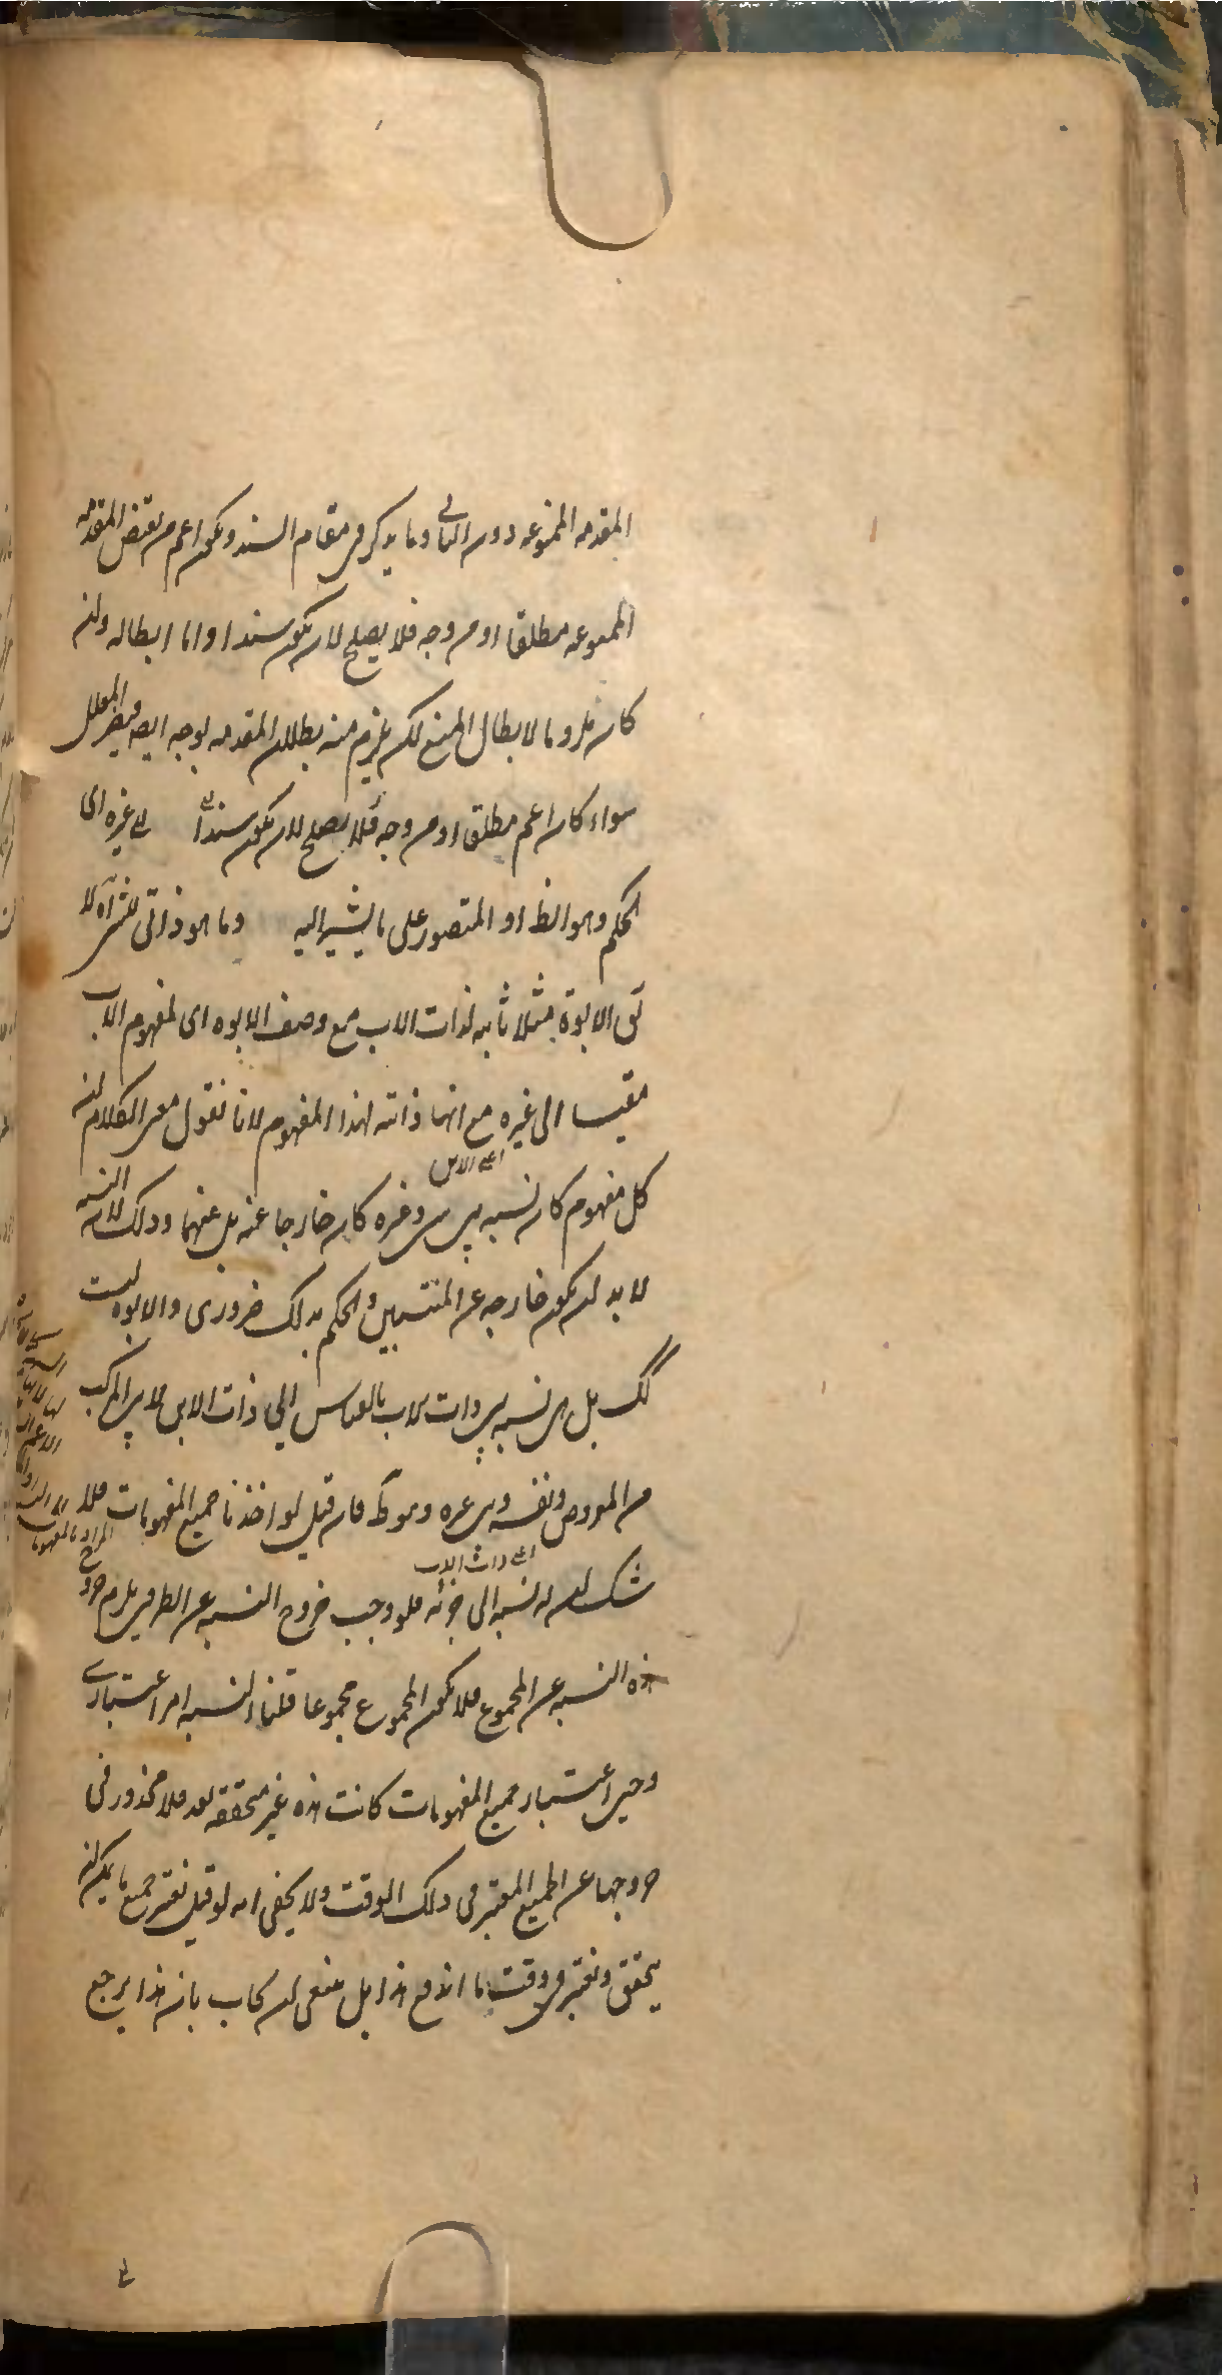 المقدمه الممنوعه دون الثانى وما يذكر فى مقام السند ويكون اعم من نقيض المقدمه
الممنوعه مطلقا او من وجه فلا يصلح لان يكون سندا واما ابطاله وان
كان ملزوما لابطال المنع لكن يلزم منه بطلان المقدمه بوجه ايضه فيضر المعلل
سواء كان اعم مطلقا او من وجه فلا يصلح لان يكون سندا الى غيره اى
الحكم وهو الظ او المتصور على ما يشير اليه وما هو ذاتى للشئ آه لا
يق الابوة مثلا ثابته لذات الاب مع وصف الابوه اى لمفهوم الاب
مقيسا الى غيره مع انها ذاتيه لهذا المفهوم لانا نقول معنى الكلام ان
كل مفهوم كان نسبه بين شئ وغيره كان خارجا عنه بل عنهما وذلك لان النسبه
اعنى الابن
لا بد ان يكون خارجه عن المنتسبين والحكم بذلك ضرورى والابوه ليست
كك بل هى نسبه بين ذات الاب بالقياس الى ذات الابن لا بين المركب
من المعروض ونفسه وبين غيره وهو ظ فان قيل لو اخذنا جميع المفهومات فلا
شك ان له نسبه الى جزئه فلو وجب خروج النسبه عن الطرفين يلزم خروج
اعنى ذات الاب
هذه النسبه عن المجموع فلا يكون المجموع مجموعا قلنا النسبه امر اعتبارى
وحين اعتبار جميع المفهومات كانت هذه غير متحققه بعد فلا محذور فى
خروجها عن الجميع المعتبر فى ذلك الوقت ولا يخفى انه لو قيل نعتبر جميع ما يمكن ان
يتحقق ويعتبر فى وقت ما اندفع هذا بل ينبغى ان يجاب بان هذا يرجع